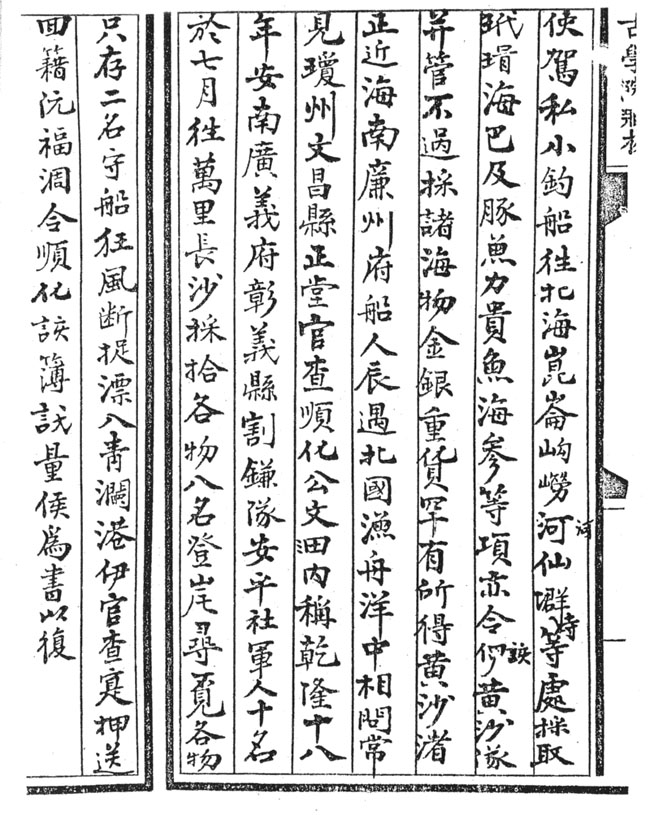 使駕私小釣船往北海崑崙岣嶗河仙𡼈等處採取
玳瑁海巴及豚魚力貴魚海參等項亦令伊該黃沙隊
并管不過採諸海物金銀重貨罕有所得黃沙渚
正近海南廉州府船人辰遇北國漁舟洋中相問常
見瓊州文昌縣正堂官查順化公文內稱乾隆十八
年安南廣義府彰義縣割鎌隊安平社軍人十名
於七月往萬里長沙採拾各物八名登岸尋覓各物
只存二名守船狂風断捉漂入青瀾港伊官查寔押送
回籍沅福淍令順化該簿識量侯爲書以復